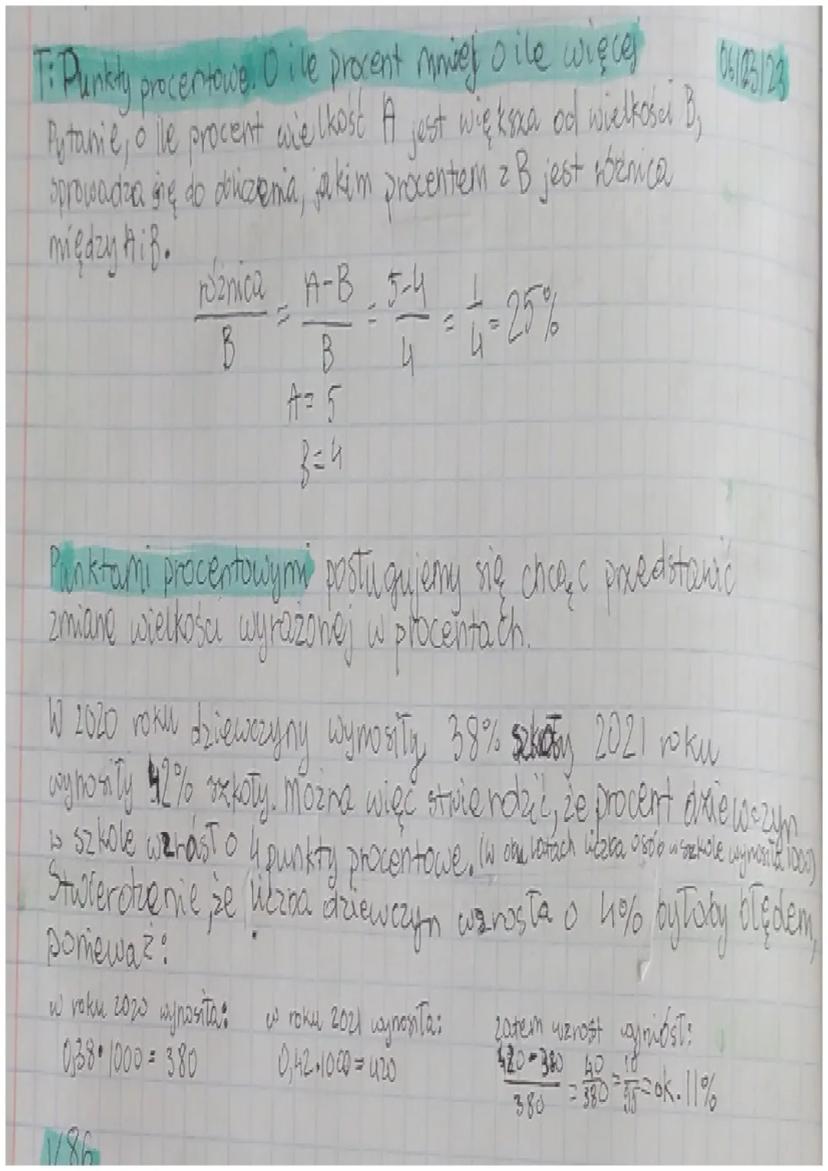 T: Punkty procentowe. O ile procent mniej o ile więcej 06/03/23
Pytanie, o ile procent wielkość A jest większa od wielkości B,
sprowadza się do obliczenia, jakim procentem z B jest różnica
między A i B.
różnica/B = A-B/B = 5-4/4 = 1/4 = 25%
A = 5
B = 4
Punktami procentowymi posługujemy się chcąc przedstawić
zmianę wielkości wyrażonej w procentach.
W 2020 roku dziewczyny wynosiły 38% szkoły 2021 roku
wynosiły 42% szkoły. Można więc stwierdzić, że procent dziewczyn
w szkole wzrósł o 4 punkty procentowe. (w obu latach liczba osób w szkole wynosiła 1000)
Stwierdzenie, że liczba dziewczyn wzrosła o 4% byłoby błędem,
ponieważ:
w roku 2020 wynosiła: w roku 2021 wynosiła: zatem wzrost wyniósł:
0,38·1000 = 380 0,42·1000 = 420 420-380/380 = 40/380 = = ok. 11%
1/86